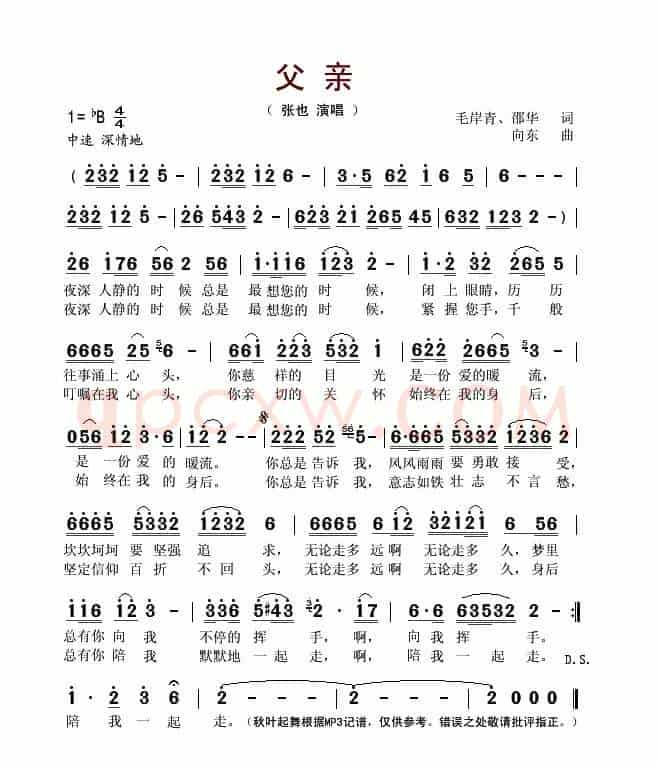 父 亲
( 张也 演唱 )
1= ♭B 4/4
毛岸青、邵华 词
中速 深情地
向东 曲
( 232 12 5 - | 232 12 6 - | 3·5 62 16 5 |
232 12 5 - | 26 543 2 - | 623 21 265 45 | 632 123 2 - )
26 176 56 2 56 | 1·116 123 2 - | 1·2 32 2655
夜深 人静的 时 候 总是 最 想您的 时 候, 闭 上 眼睛,历 历
夜深 人静的 时 候 总是 最 想您的 时 候, 紧 握 您手,千 般
6665 25 6 - | 661 223 532 1 | 622 2665 3 -
往事涌上 心 头, 你慈 样的 目 光 是一份 爱的暖 流,
叮嘱在我 心 头, 你亲 切的 关 怀 始终在 我的身 后,
056 12 3·6 | 2 - - - | 222 52 2 - | 6·665 5332 1236
是 一份 爱 的 暖流。 你总是 告诉 我, 风风雨雨 要 勇敢 接 受,
始 终在 我 的 身后。 你总是 告诉 我, 意志如铁 壮 志 不 言 愁,
6665 5332 1232 6 | 6665 6 12 32121 6 56
坎坎坷坷 要 坚强 追 求, 无论走多 远啊 无论走多 久, 梦里
坚定信仰 百 折 不 回 头, 无论走多 远啊 无论走多 久, 身后
116 12 3 - | 332 5#43 2 - 17 | 6·6 63532 2 - :||
总有你 向 我 不停的 挥 手, 啊, 向 我 挥 手。
总有你 陪 我 默默地 一 起 走, 啊, 陪 我 一 起 走。 D.S.
1 · 2 3 6 | 2 - - - | 2 - - - | 2 - - - ||
陪 我 一 起 走。(秋叶起舞根据MP3记谱，仅供参考。错误之处敬请批评指正。)
qpcxw.com